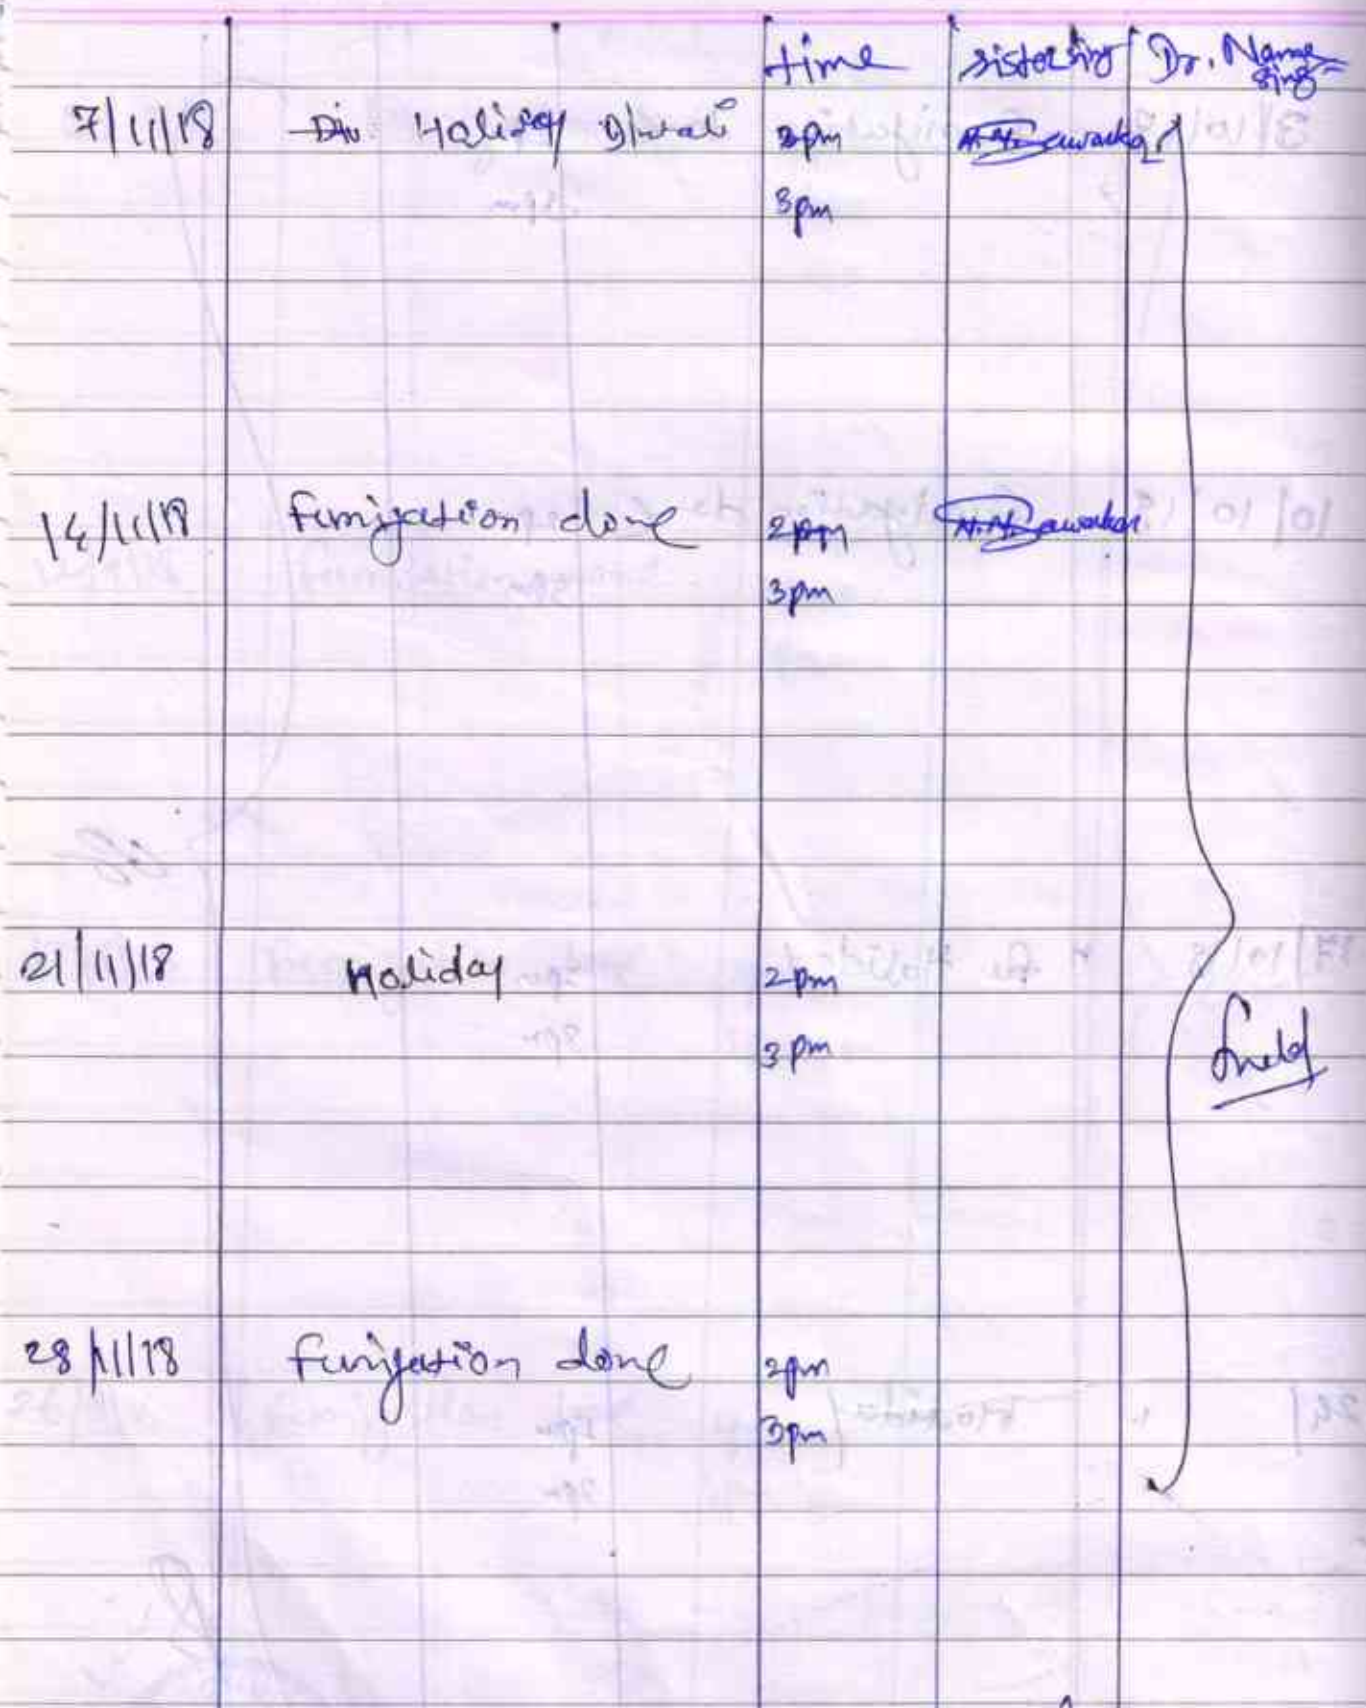 time sister sing Dr. Name sing
7/11/18 Div Holiday Diwali 2pm N.N. Sawarkar
3pm
14/11/18 fumigation done 2pm N.N. Sawarkar
3pm
21/11/18 Holiday 2pm
3pm
28/11/18 fumigation done 2pm
3pm